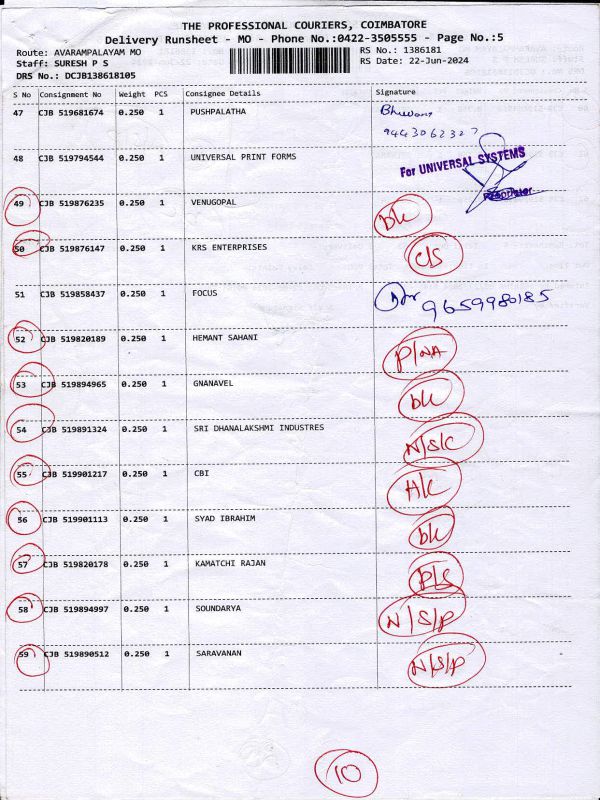 THE PROFESSIONAL COURIERS, COIMBATORE
Delivery Runsheet - MO - Phone No.:0422-3505555 - Page No.:5
Route: AVARAMPALAYAM MO RS No.: 1386181
Staff: SURESH P S RS Date: 22-Jun-2024
DRS No.: DCJB138618105
S No Consignment No Weight PCS Consignee Details Signature
47 CJB 519681674 0.250 1 PUSHPALATHA
9443062327
48 CJB 519794544 0.250 1 UNIVERSAL PRINT FORMS For UNIVERSAL SYSTEMS
Proprietor
49 CJB 519876235 0.250 1 VENUGOPAL DK
50 CJB 519876147 0.250 1 KRS ENTERPRISES C/S
51 CJB 519858437 0.250 1 FOCUS 9659980185
52 CJB 519820189 0.250 1 HEMANT SAHANI P/NA
53 CJB 519894965 0.250 1 GNANAVEL bk
54 CJB 519891324 0.250 1 SRI DHANALAKSHMI INDUSTRES N/S/C
55 CJB 519901217 0.250 1 CBI A/C
56 CJB 519901113 0.250 1 SYAD IBRAHIM bk
57 CJB 519820178 0.250 1 KAMATCHI RAJAN P/S
58 CJB 519894997 0.250 1 SOUNDARYA N/S/P
59 CJB 519890512 0.250 1 SARAVANAN N/S/P
10